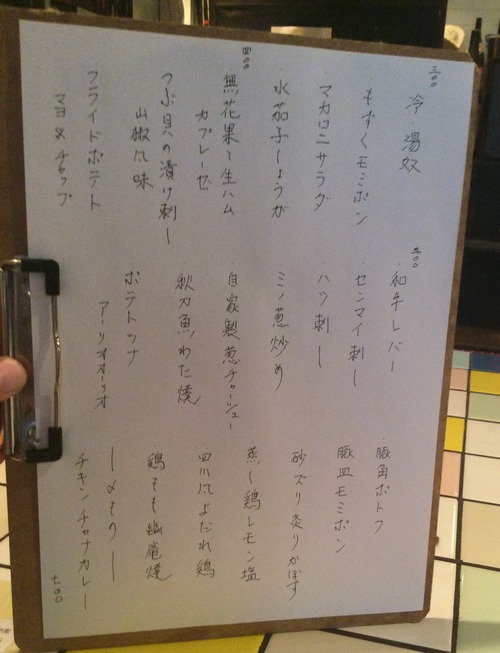 三〇〇
冷 湯奴
・もずくモミポン
・マカロニサラダ
・水茄子しょうが
四〇〇
無花果と生ハム
カプレーゼ
つぶ貝の漬け刺し
山椒風味
フライドポテト
マヨ&チャップ
五〇〇
・和牛レバー
・センマイ刺し
・ハツ刺し
・ミノ葱炒め
・自家製葱チャーシュー
秋刀魚わた焼
ポテトツナ
アーリオオーリオ
・豚角ポトフ
豚皿モミポン
砂ズリ炙りかぼす
蒸し鶏レモン塩
四川風よだれ鶏
・鶏もも幽庵焼
ー〆ものー
チキンチャナカレー
七〇〇